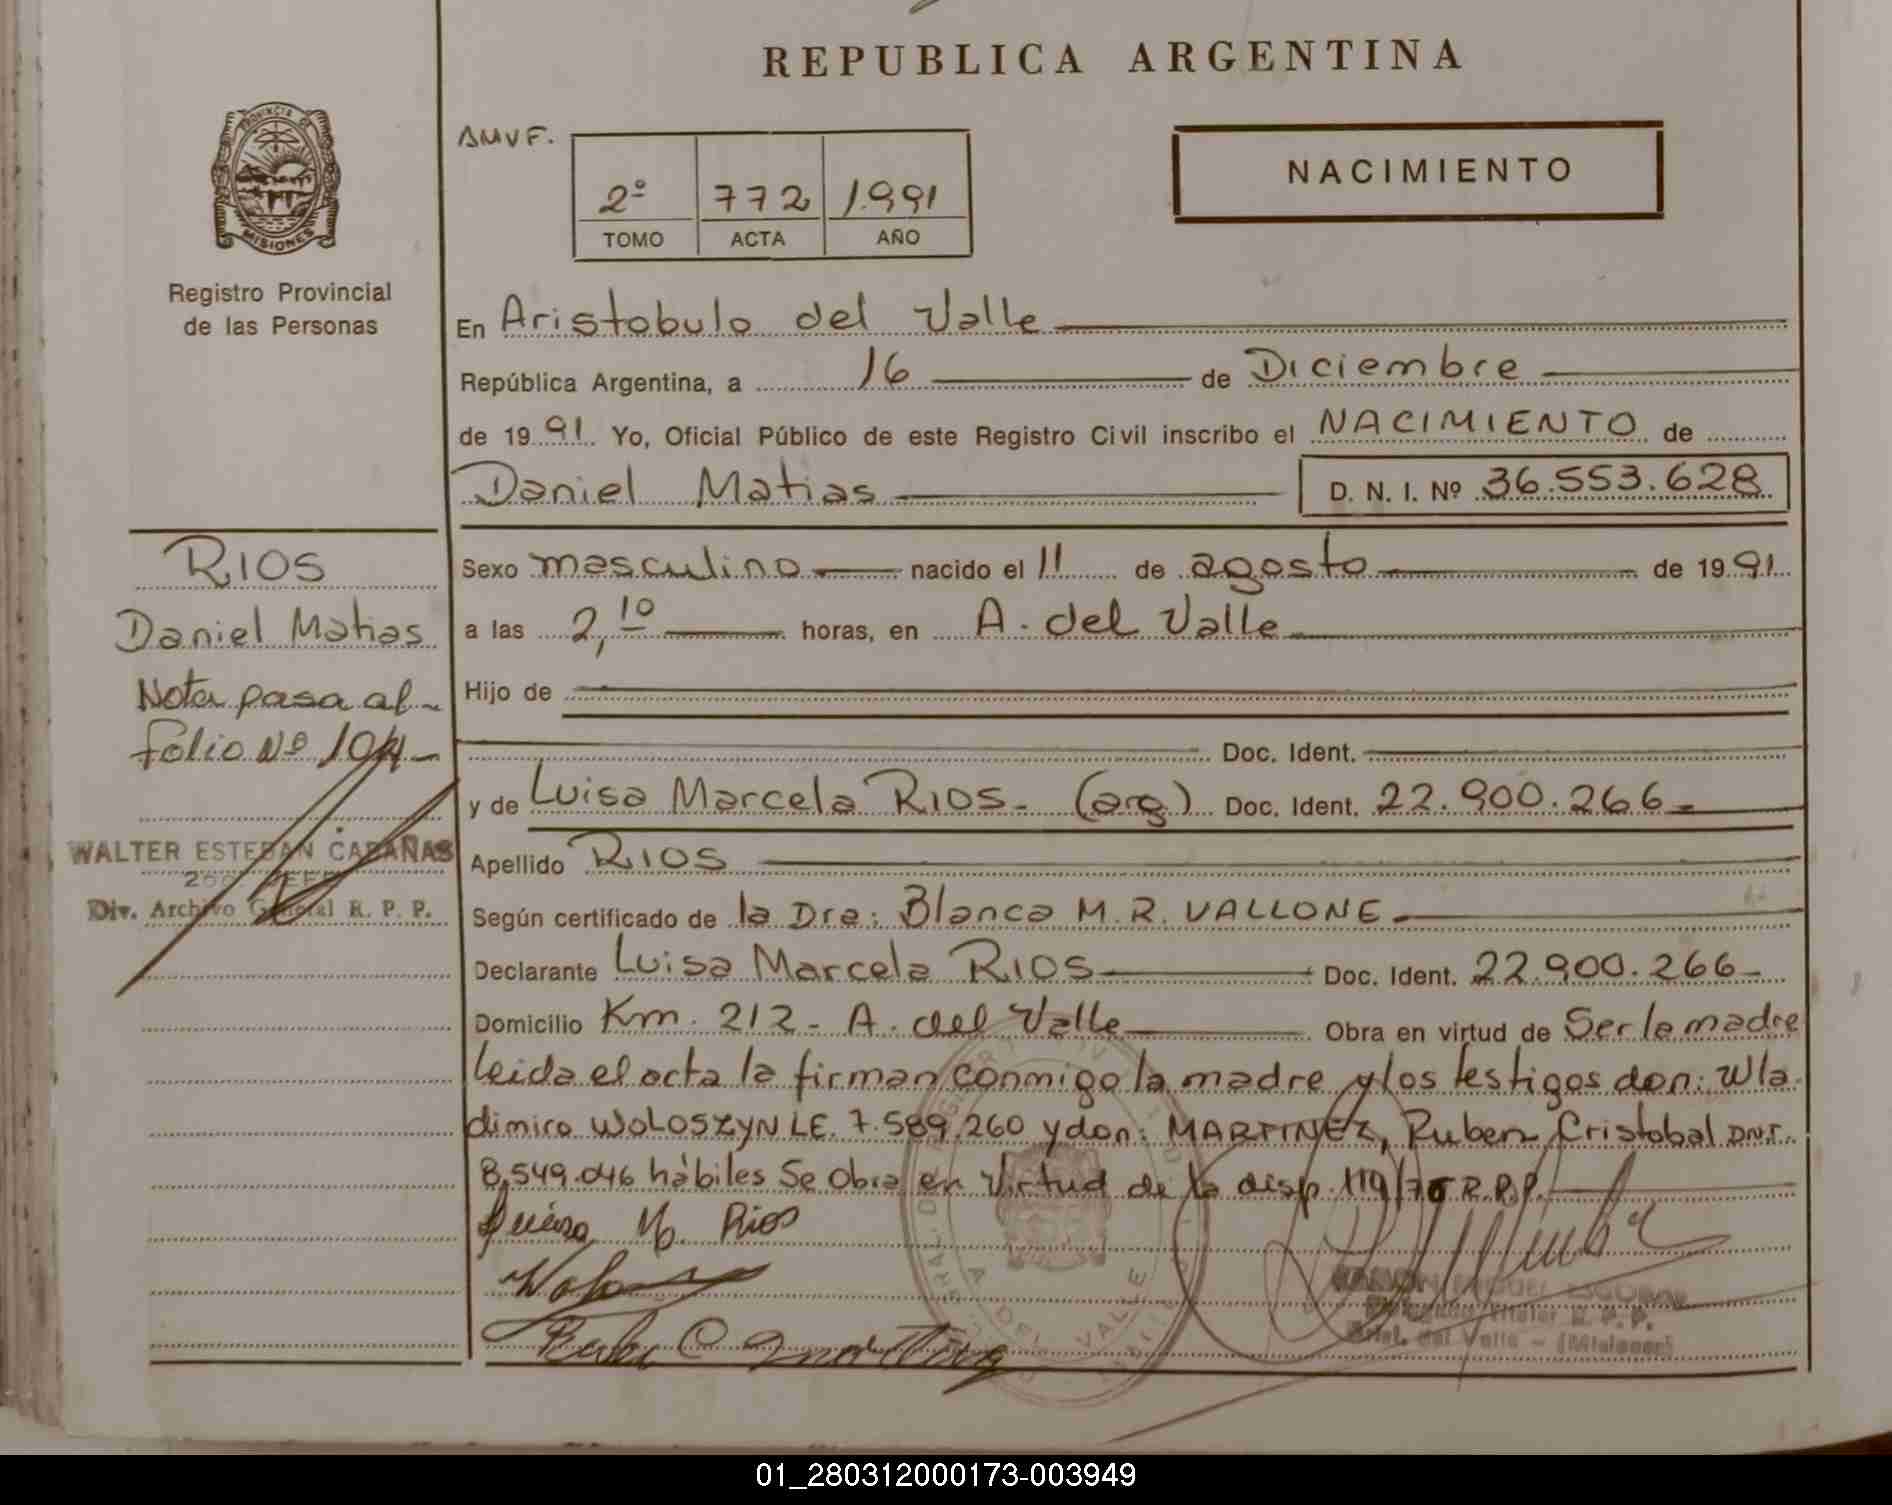 REPUBLICA ARGENTINA
PROVINCIA DE
MISIONES
Registro Provincial
de las Personas
AMVF.
2º 772 1.991
TOMO ACTA AÑO
NACIMIENTO
En Aristobulo del Valle
República Argentina, a 16 de Diciembre
de 1991. Yo, Oficial Público de este Registro Civil inscribo el NACIMIENTO de
Daniel Matias D. N. I. Nº 36.553.628
RIOS
Daniel Matias
Nota pasa al
folio Nº 104
WALTER ESTEBAN CABAÑAS
Div. Archivo General R. P. P.
Sexo masculino nacido el 11 de agosto de 1991.
a las 2,10 horas, en A. del Valle
Hijo de
Doc. Ident.
y de Luisa Marcela RIOS- (arg) Doc. Ident. 22.900.266-
Apellido RIOS
Según certificado de la Dra: Blanca M.R. VALLONE
Declarante Luisa Marcela RIOS Doc. Ident. 22.900.266-
Domicilio Km. 212- A. del Valle Obra en virtud de Ser la madre
leida el acta la firman conmigo la madre y los testigos don: Wla
dimiro WOLOSZYN LE. 7.589.260 y don: MARTINEZ, Ruben Cristobal DNI.
8.549.046 hábiles Se Obra en Virtud de la disp. 119/76 R.P.P.
Luisa M. Rios
A. DEL VALLE
RAMON MIGUEL ESCOBAR
Titular R. P. P.
Arist. del Valle - (Misiones)
01_280312000173-003949